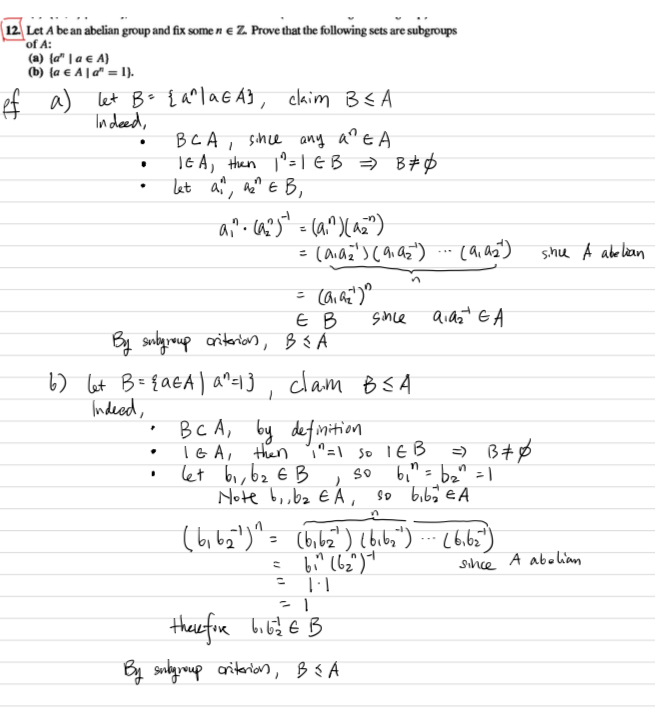 12. Let A be an abelian group and fix some n ∈ Z. Prove that the following sets are subgroups
of A:
(a) {aⁿ | a ∈ A}
(b) {a ∈ A | aⁿ = 1}.
pf a) let B = {aⁿ | a ∈ A}, claim B ≤ A
Indeed,
• B ⊂ A, since any aⁿ ∈ A
• 1 ∈ A, then 1ⁿ = 1 ∈ B ⇒ B ≠ ∅
• let a₁ⁿ, a₂ⁿ ∈ B,
a₁ⁿ · (a₂ⁿ)⁻¹ = (a₁ⁿ)(a₂⁻ⁿ)
= (a₁a₂⁻¹)(a₁a₂⁻¹) ⋯ (a₁a₂⁻¹) since A abelian
n
= (a₁a₂⁻¹)ⁿ
∈ B since a₁a₂⁻¹ ∈ A
By subgroup criterion, B ≤ A
b) let B = {a ∈ A | aⁿ = 1}, claim B ≤ A
Indeed,
• B ⊂ A, by definition
• 1 ∈ A, then 1ⁿ = 1 so 1 ∈ B ⇒ B ≠ ∅
• let b₁, b₂ ∈ B, so b₁ⁿ = b₂ⁿ = 1
Note b₁, b₂ ∈ A, so b₁b₂⁻¹ ∈ A
n
(b₁b₂⁻¹)ⁿ = (b₁b₂⁻¹)(b₁b₂⁻¹) ⋯ (b₁b₂⁻¹)
= b₁ⁿ(b₂ⁿ)⁻¹ since A abelian
= 1·1
= 1
therefore b₁b₂⁻¹ ∈ B
By subgroup criterion, B ≤ A